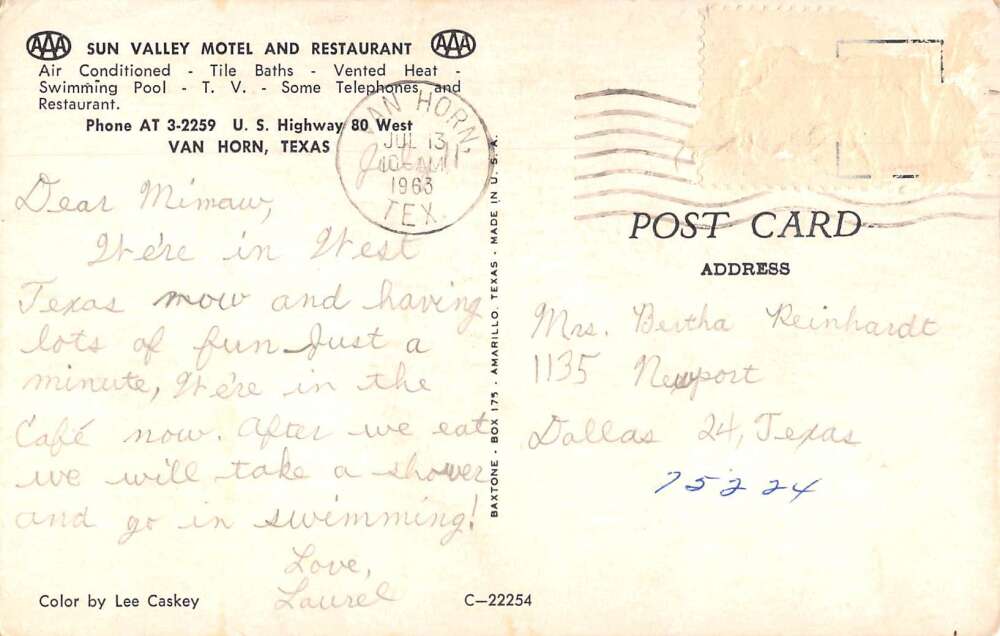 AAA SUN VALLEY MOTEL AND RESTAURANT AAA
Air Conditioned - Tile Baths - Vented Heat -
Swimming Pool - T. V. - Some Telephones and
Restaurant.
Phone AT 3-2259 U. S. Highway 80 West
VAN HORN, TEXAS
VAN HORN,
JUL 13
10-AM
1963
TEX.
Dear Mimaw,
We're in West
Texas now and having
lots of fun. Just a
minute, We're in the
Café now. After we eat
we will take a shower
and go in swimming!
Love,
Laurel
Color by Lee Caskey
C-22254
BAXTONE - BOX 175 - AMARILLO, TEXAS - MADE IN U. S. A.
POST CARD
ADDRESS
Mrs. Bertha Reinhardt
1135 Newport
Dallas 24, Texas
75224